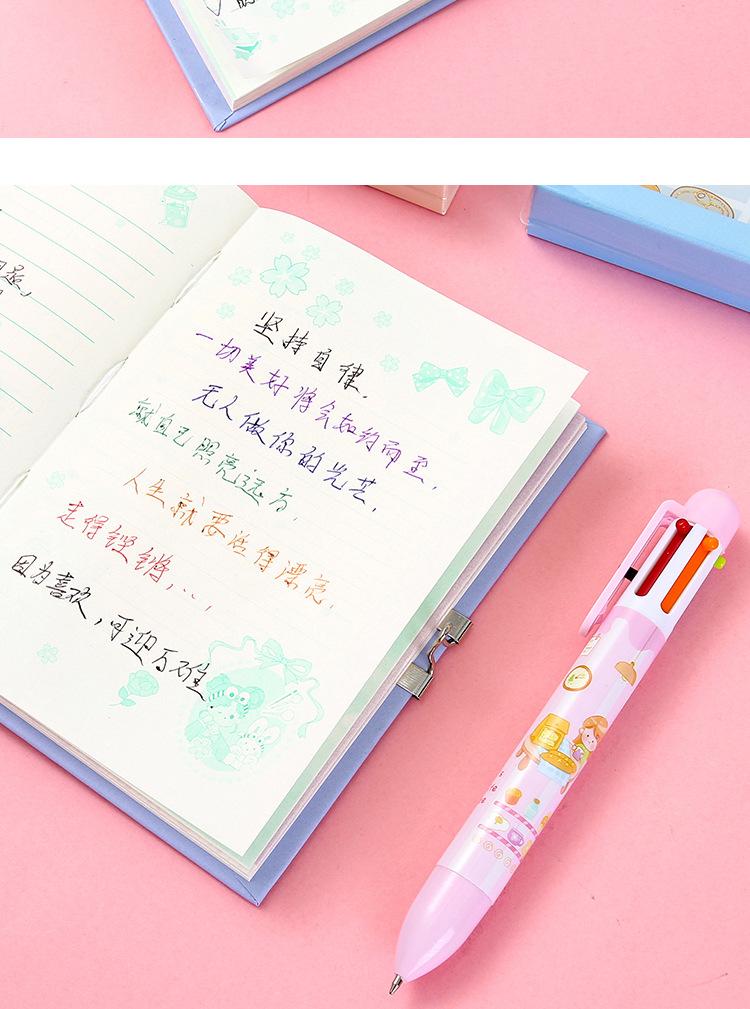 坚持自律.
一切美好将会如约而至,
无人做你的光芒,
就自己照亮远方,
人生就要活得漂亮,
走得铿锵....,
因为喜欢,可迎万难